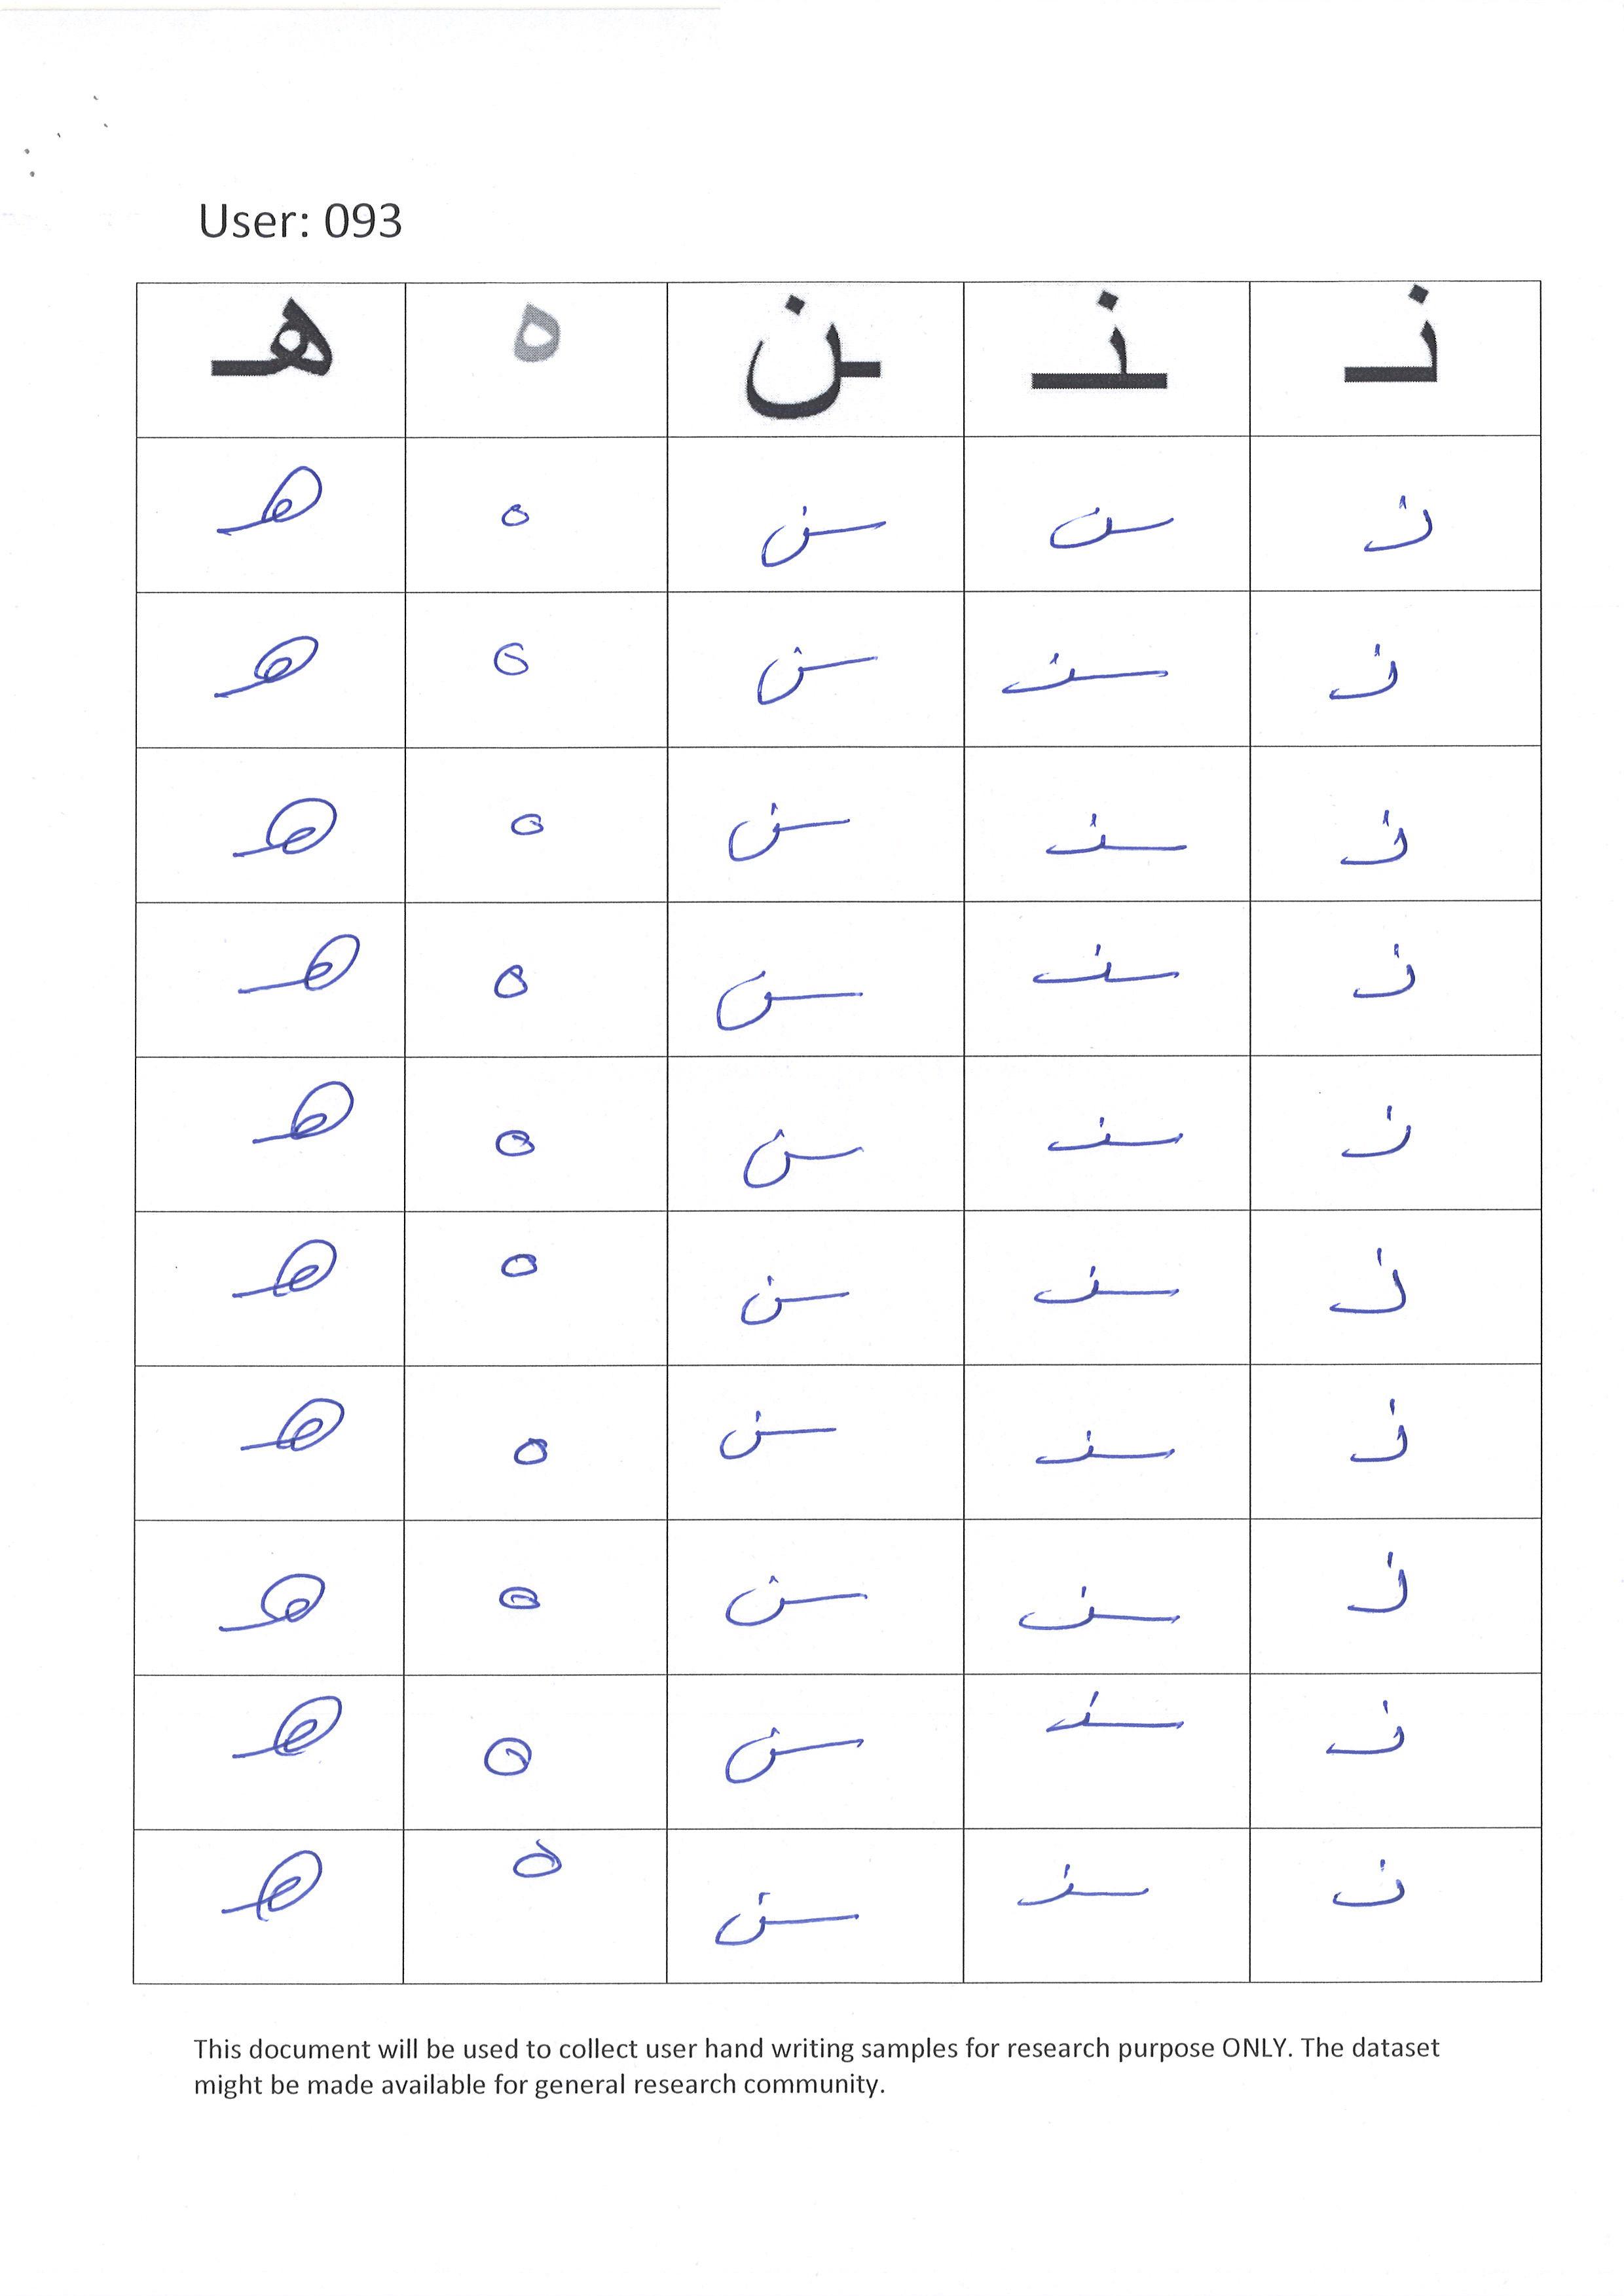 User: 093
نـ ـنـ ـن ه هـ
نـ ـنـ ـن ه هـ
نـ ـنـ ـن ه هـ
نـ ـنـ ـن ه هـ
نـ ـنـ ـن ه هـ
نـ ـنـ ـن ه هـ
نـ ـنـ ـن ه هـ
نـ ـنـ ـن ه هـ
نـ ـنـ ـن ه هـ
نـ ـنـ ـن ه هـ
نـ ـنـ ـن ه هـ
This document will be used to collect user hand writing samples for research purpose ONLY. The dataset
might be made available for general research community.